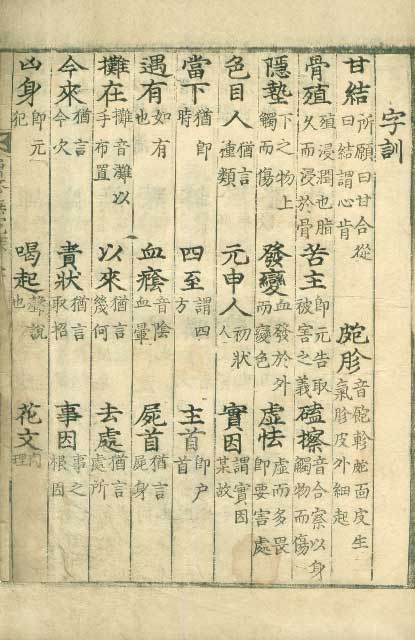 字訓
甘結 所願曰甘合從曰結謂心肯 皰胗 音軫面皮生氣胗皮外細起
骨殖 殖浸潤也脂久而浸於骨 苦主 即元告取被害之義 磕擦 音合察以身觸物而傷
隱墊 下之物上觸而傷 發變 血發於外而變色 虛怯 虛而多畏即要害處
色目人 猶言種類 元申人 初狀人 實因 謂實因某故
當下 猶即時 四至 謂四方 主首 即户首
遇有 如有也 血癊 音陰血暈 屍首 猶言屍身
攤在 攤音灘以手布置 以來 猶言幾何 去處 猶言處所
今來 猶言今次 責狀 猶言取招 事因 事之根因
凶身 即元犯 喝起 聲說也 花文 理